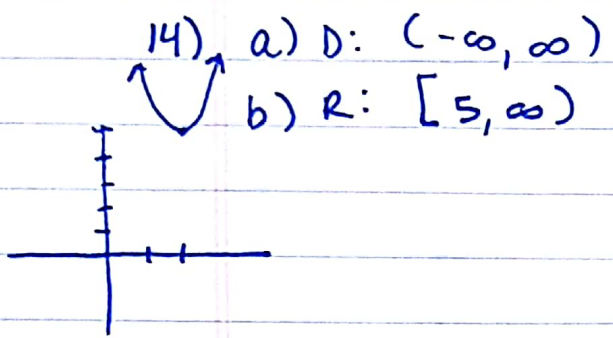 14) a) D: (-∞, ∞)
b) R: [5, ∞)